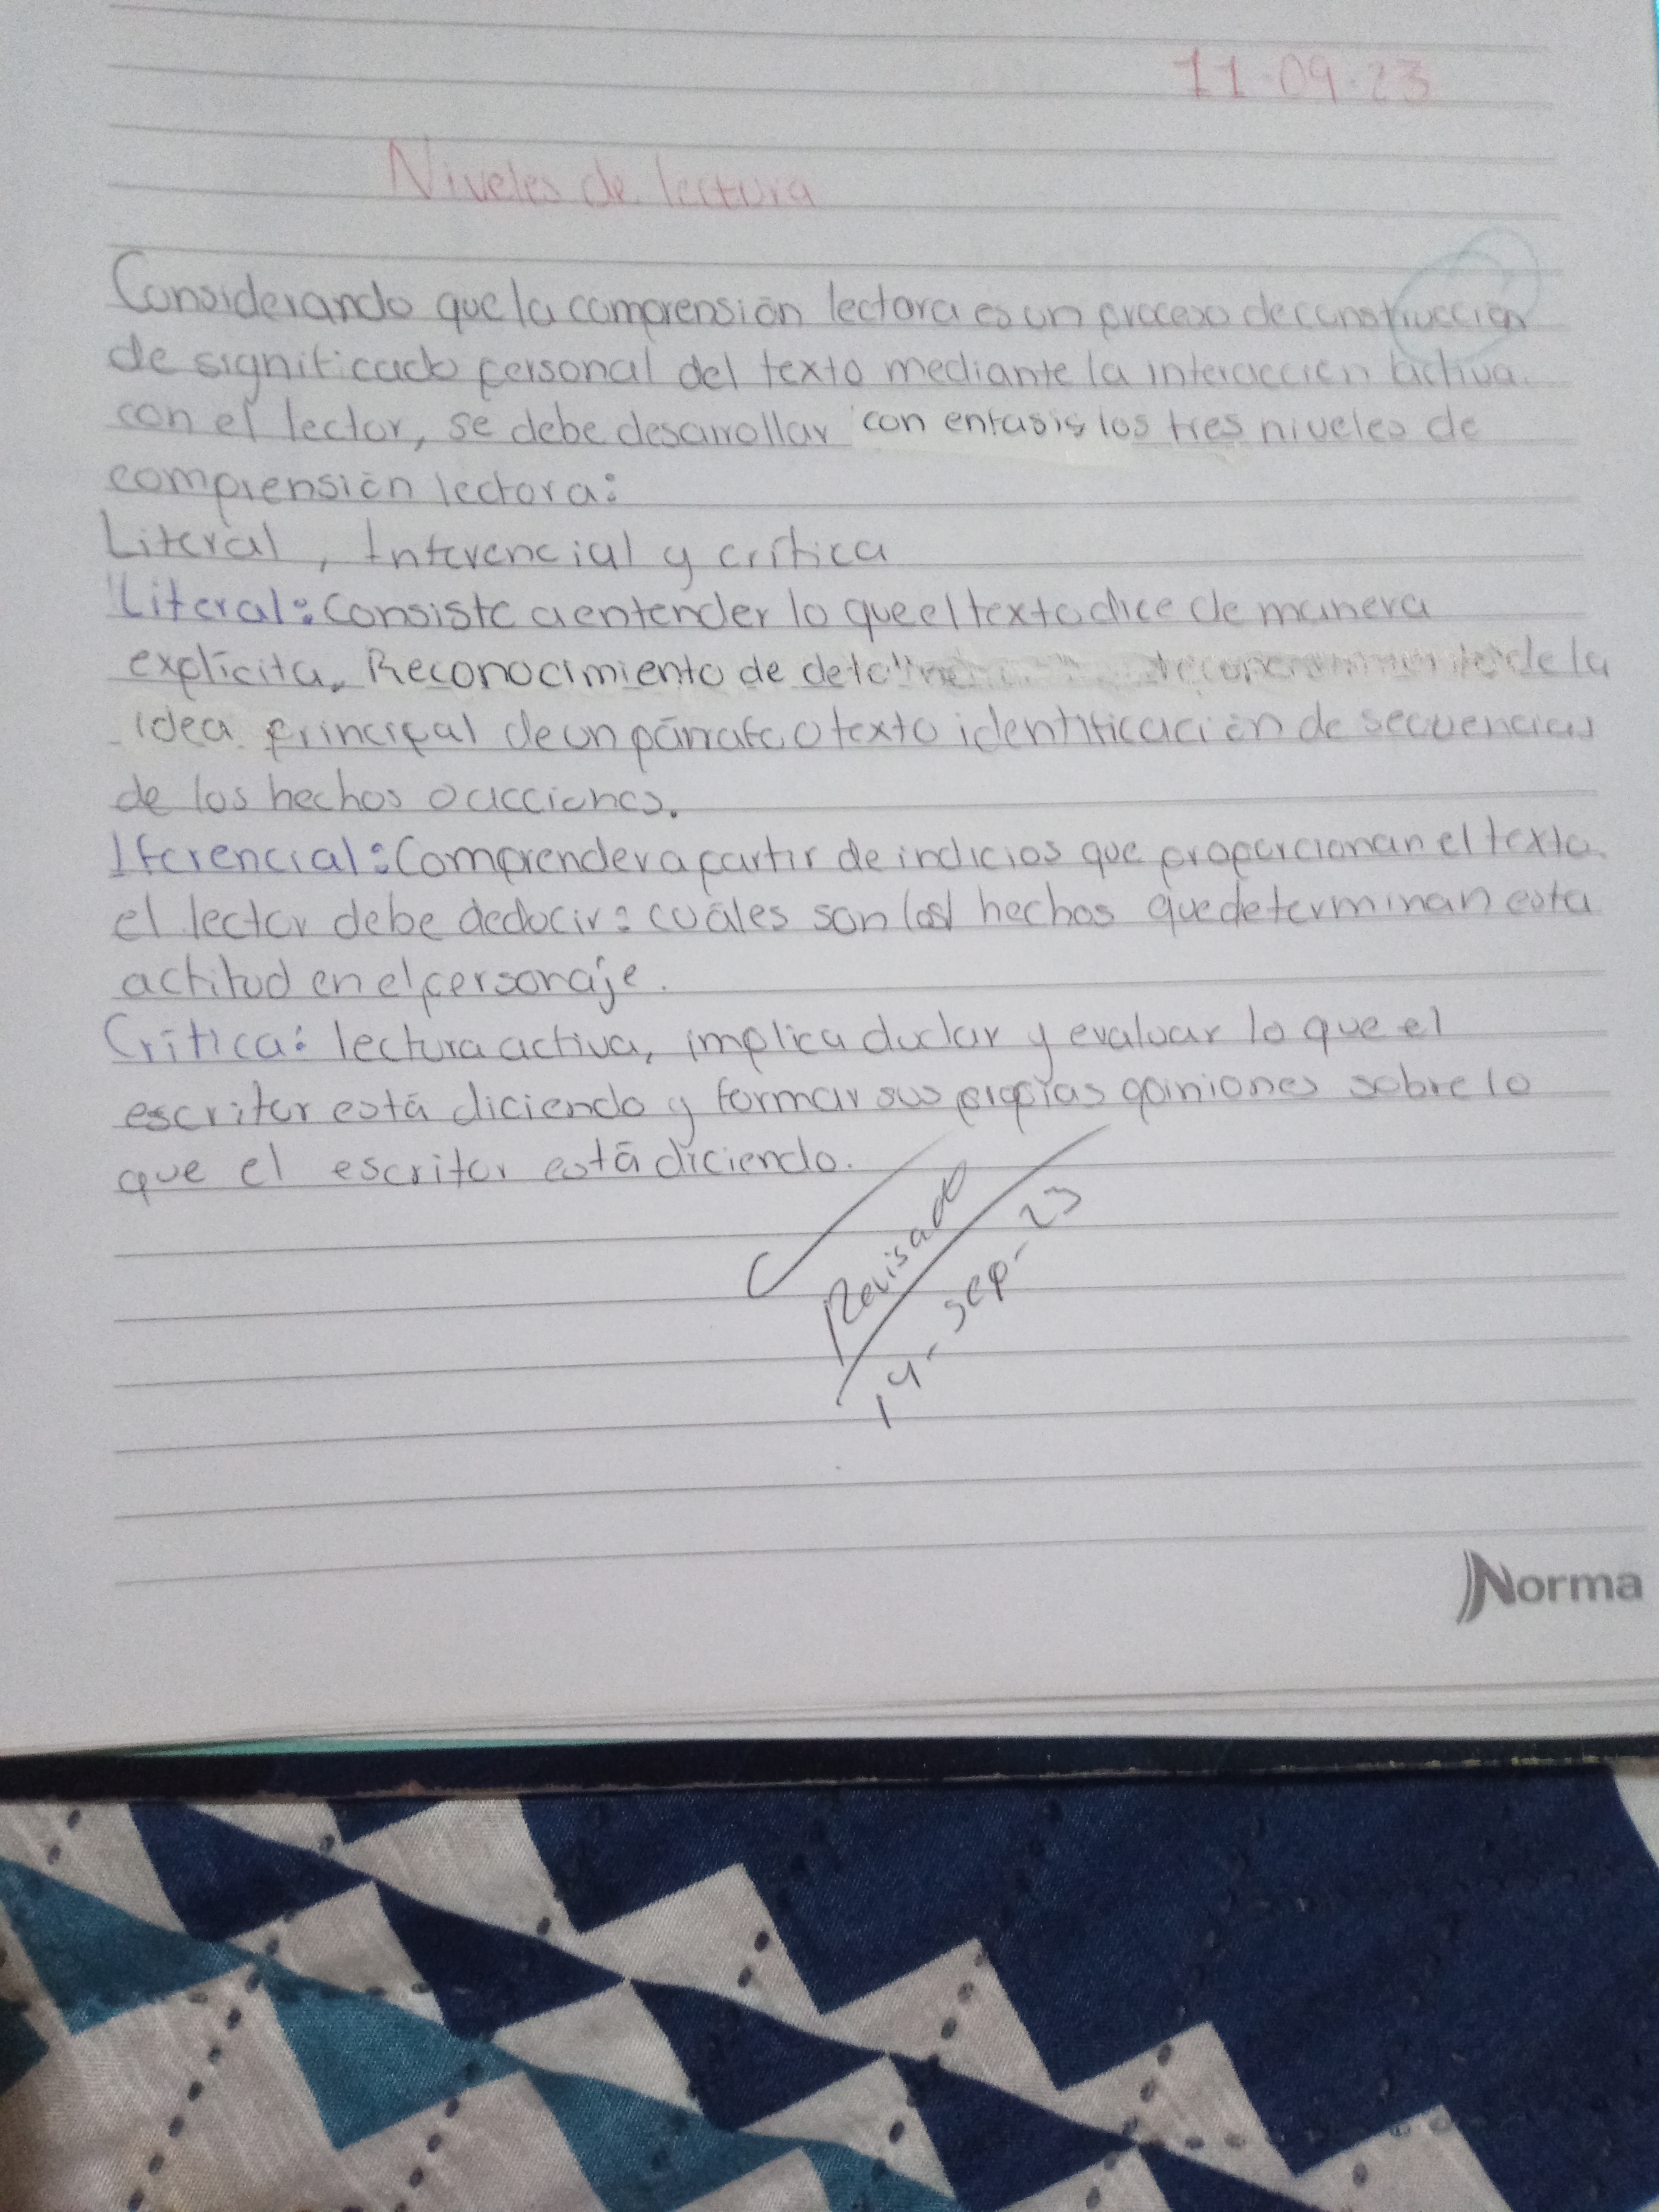 11-09-23
Niveles de lectura
Considerando que la comprensión lectora es un proceso de construcción
de significado personal del texto mediante la interacción activa
con el lector, se debe desarrollar con enfasis los tres niveles de
comprensión lectora:
Literal, Inferencial y crítica
Literal: Consiste a entender lo que el texto dice de manera
explícita. Reconocimiento de de la
idea principal de un párrafo o texto identificación de secuencias
de los hechos o acciones.
Iferencial: Comprender a partir de indicios que proporcionan el texto.
el lector debe deducir: cuáles son los hechos que determinan esta
actitud en el personaje.
Crítica: lectura activa, implica dudar y evaluar lo que el
escritor está diciendo y formar sus propias opiniones sobre lo
que el escritor está diciendo.
Revisado
14-sep-23
Norma